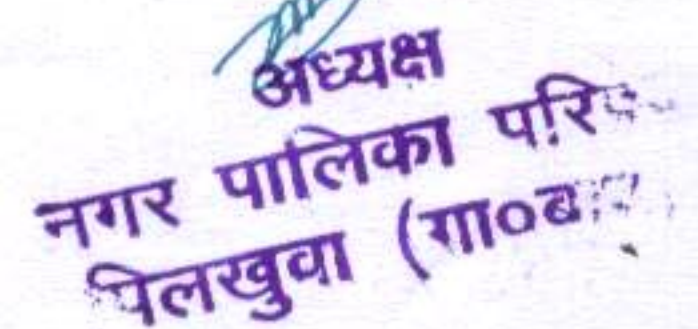 अध्यक्ष
नगर पालिका परि
पिलखुवा (गा०ब